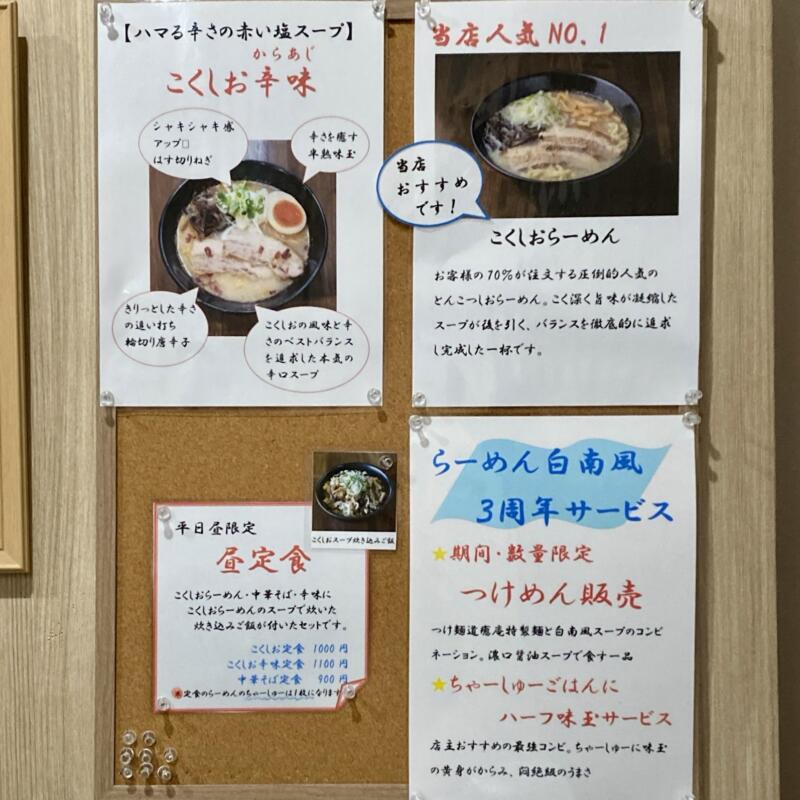 【ハマる辛さの赤い塩スープ】
からあじ
こくしお辛味
シャキシャキ感
アップ□
はす切りねぎ
辛さを癒す
半熟味玉
きりっとした辛さ
の追い打ち
輪切り唐辛子
こくしおの風味と辛
さのベストバランス
を追求した本気の
辛口スープ
当店人気NO.1
当店
おすすめ
です!
こくしおらーめん
お客様の70%が注文する圧倒的人気の
とんこつしおらーめん。こく深く旨味が凝縮した
スープが後を引く、バランスを徹底的に追求
し完成した一杯です。
こくしおスープ炊き込みご飯
平日昼限定
昼定食
こくしおらーめん・中華そば・辛味に
こくしおらーめんのスープで炊いた
炊き込みご飯が付いたセットです。
こくしお定食 1000円
こくしお辛味定食 1100円
中華そば定食 900円
定食のらーめんのちゃーしゅーは1枚になります
らーめん白南風
3周年サービス
★期間・数量限定
つけめん販売
つけ麺道癒庵特製麺と白南風スープのコンビ
ネーション。濃口醤油スープで食す一品
★ちゃーしゅーごはんに
ハーフ味玉サービス
店主おすすめの最強コンビ。ちゃーしゅーに味玉
の黄身がからみ、悶絶級のうまさ